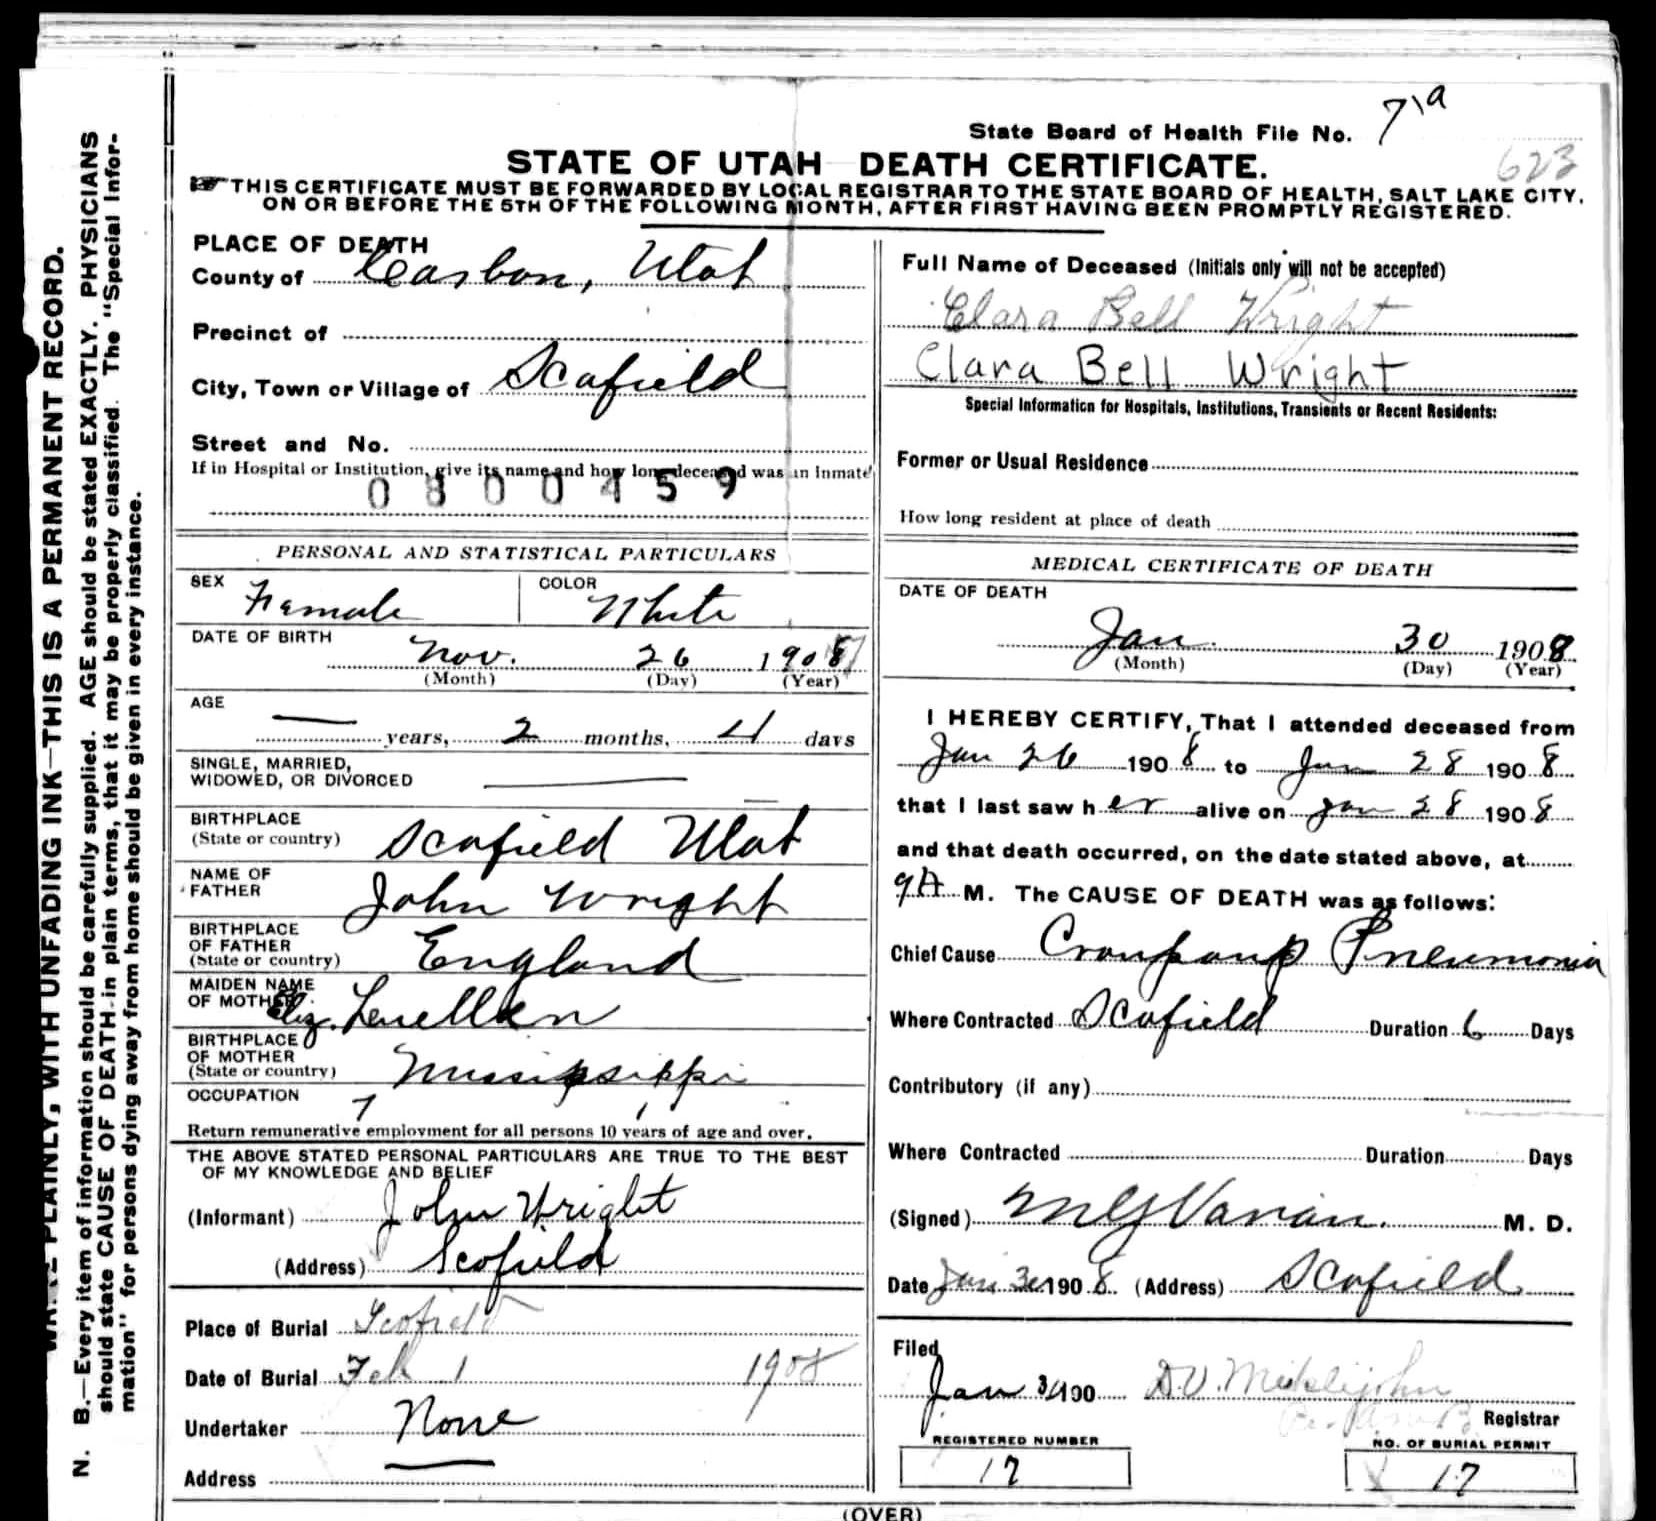 State Board of Health File No. 71a
623
STATE OF UTAH DEATH CERTIFICATE.
THIS CERTIFICATE MUST BE FORWARDED BY LOCAL REGISTRAR TO THE STATE BOARD OF HEALTH, SALT LAKE CITY,
ON OR BEFORE THE 5TH OF THE FOLLOWING MONTH, AFTER FIRST HAVING BEEN PROMPTLY REGISTERED.
PLACE OF DEATH
County of Carbon, Utah
Precinct of
City, Town or Village of Scofield
Street and No.
If in Hospital or Institution, give its name and how long deceased was an Inmate
PERSONAL AND STATISTICAL PARTICULARS
SEX Female COLOR White
DATE OF BIRTH
Nov. 26 1907
(Month) (Day) (Year)
AGE
— years, 2 months, 4 days
SINGLE, MARRIED,
WIDOWED, OR DIVORCED
BIRTHPLACE
(State or country) Scofield Utah
NAME OF
FATHER John Wright
BIRTHPLACE
OF FATHER
(State or country) England
MAIDEN NAME
OF MOTHER Eliz. Lewellen
BIRTHPLACE
OF MOTHER
(State or country) Missipsippi
OCCUPATION
Return remunerative employment for all persons 10 years of age and over.
THE ABOVE STATED PERSONAL PARTICULARS ARE TRUE TO THE BEST
OF MY KNOWLEDGE AND BELIEF
(Informant) John Wright
(Address) Scofield
Place of Burial Scofield
Date of Burial Feb 1 1908
Undertaker None
Address
Full Name of Deceased (Initials only will not be accepted)
Clara Bell Wright
Clara Bell Wright
Special Information for Hospitals, Institutions, Transients or Recent Residents:
Former or Usual Residence
How long resident at place of death
MEDICAL CERTIFICATE OF DEATH
DATE OF DEATH
Jan. 30 1908
(Month) (Day) (Year)
I HEREBY CERTIFY, That I attended deceased from
Jan 26 1908 to Jan 28 1908
that I last saw her alive on Jan 28 1908
and that death occurred, on the date stated above, at
9A M. The CAUSE OF DEATH was as follows:
Chief Cause Croupous Pneumonia
Where Contracted Scofield Duration 6 Days
Contributory (if any)
Where Contracted Duration Days
(Signed) M G Varian. M. D.
Date Jan 30 1908. (Address) Scofield
Filed
Jan 31 190 D.V. Miklejohn
Registrar
REGISTERED NUMBER
17
NO. OF BURIAL PERMIT
17
(OVER)
WRITE PLAINLY, WITH UNFADING INK—THIS IS A PERMANENT RECORD.
N. B.—Every item of information should be carefully supplied. AGE should be stated EXACTLY. PHYSICIANS
should state CAUSE OF DEATH in plain terms, that it may be properly classified. The "Special Infor-
mation" for persons dying away from home should be given in every instance.